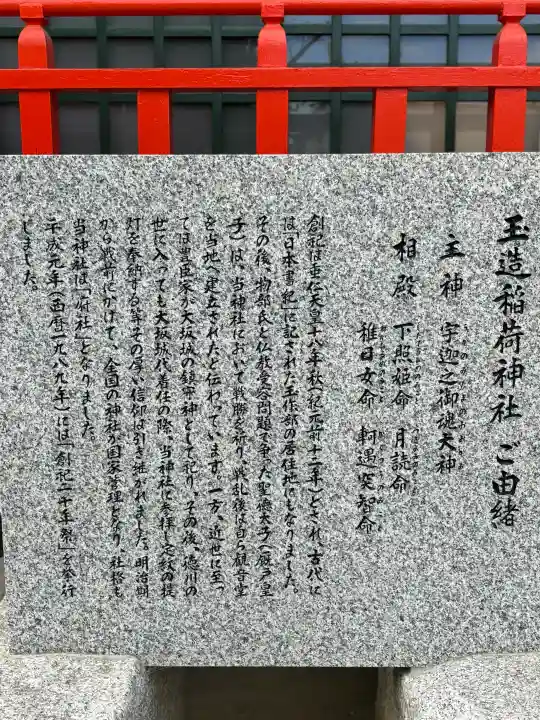 玉造稲荷神社 ご由緒
主神 宇迦之御魂大神
相殿 下照姫命 月読命
稚日女命 軻遇突智命
創祀は垂仁天皇十八年秋(紀元前十二年)とされ、古代に
は「日本書紀」に記された玉作部の居住地にもなりました。
その後、物部氏と仏教受容問題で争った聖徳太子(厩戸皇
子)は、当神社において戦勝を祈り、戦乱後は自ら観音堂
を当地へ建立されたと伝わっています。一方、近世に至っ
ては豊臣家が大坂城の鎮守神として祀り、その後、徳川の
世に入っても大坂城代着任の際、当神社に参拝し定紋の提
灯を奉納する等その厚い信仰は引き継がれました。明治期
から戦前にかけて、全国の神社が国家管理となり、社格も
当神社は「府社」となりました。
平成元年(西暦一九八九年)には「創祀二千年祭」を斎行
しました。